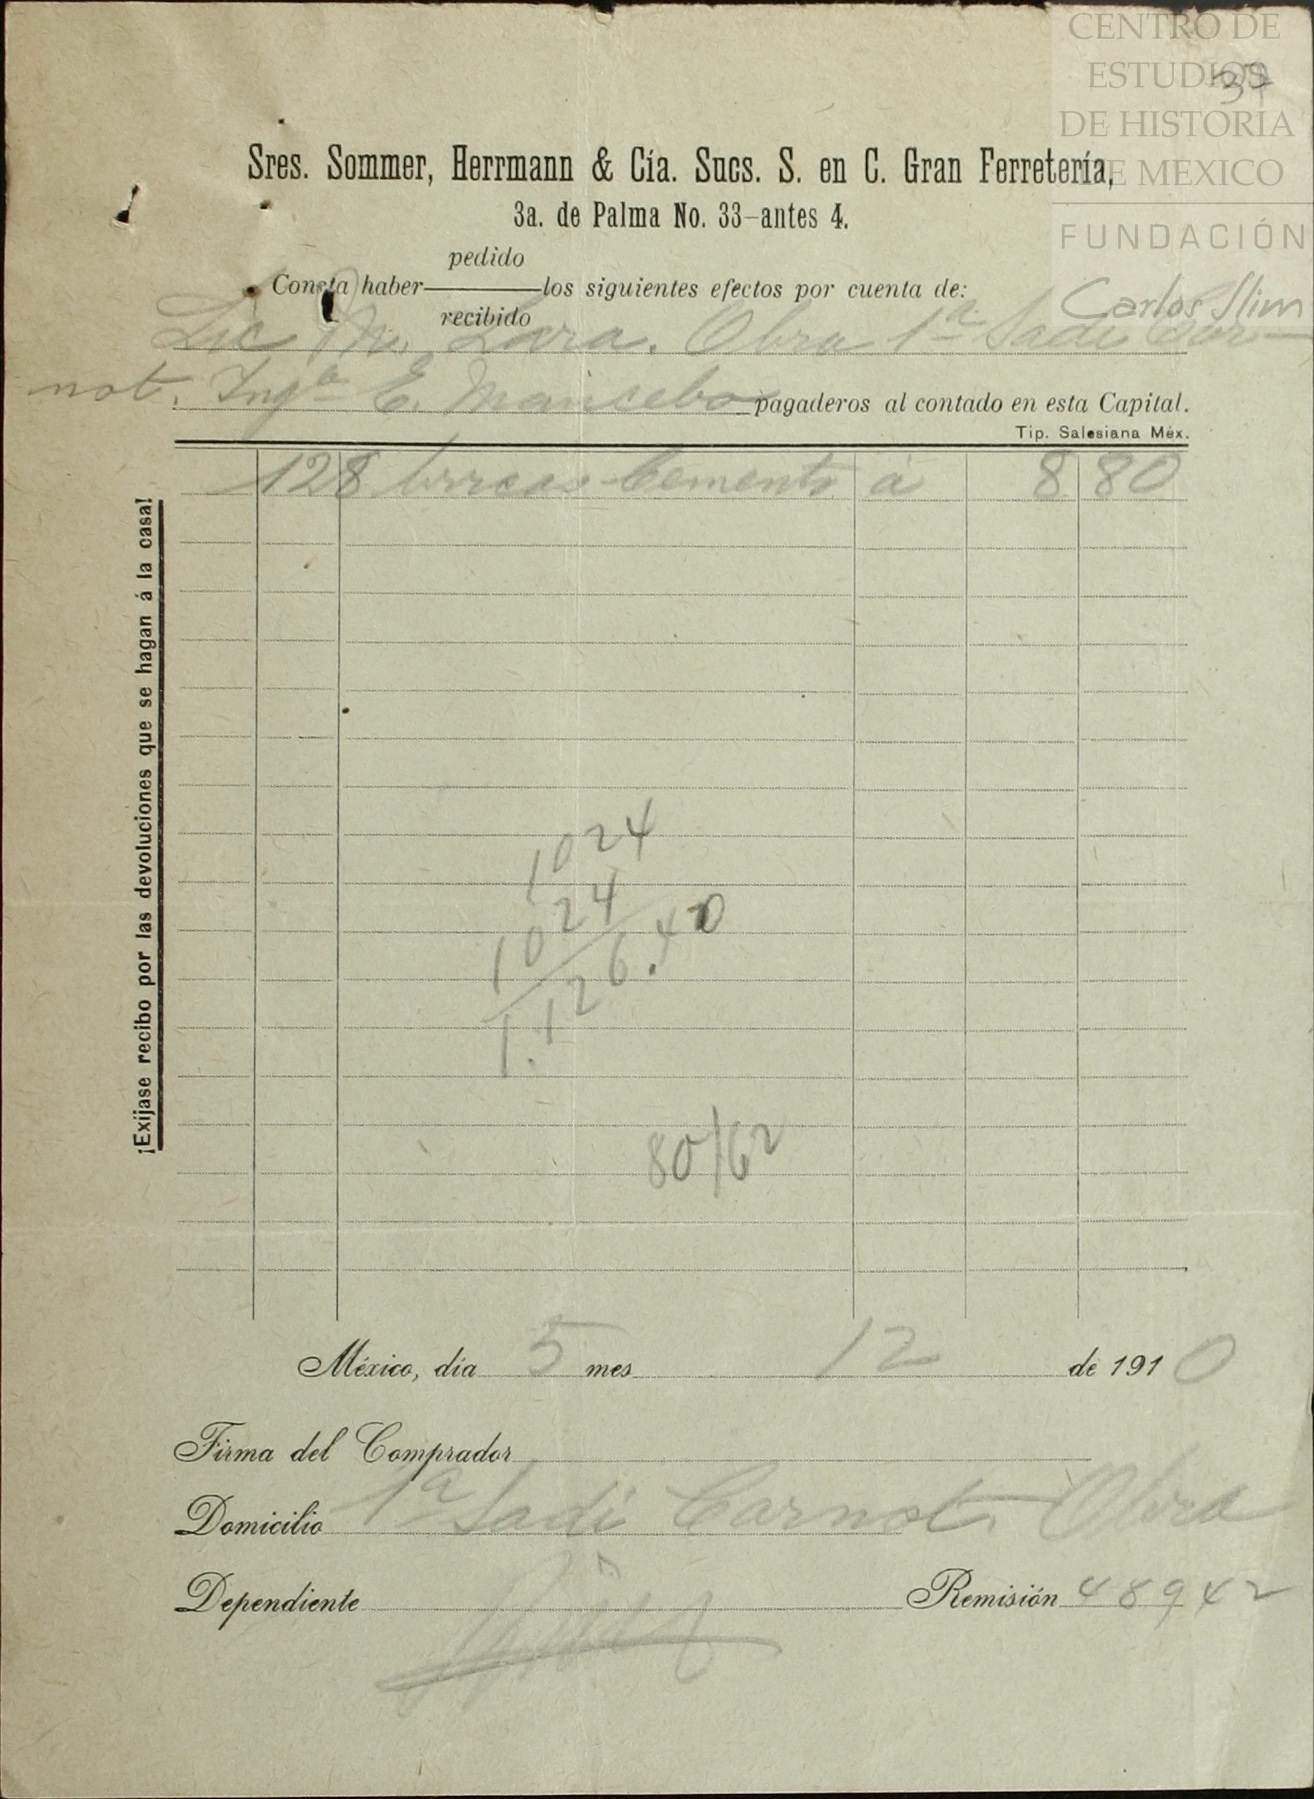 CENTRO DE
ESTUDIOS
DE HISTORIA
DE MEXICO
FUNDACIÓN
Carlos Slim
Sres. Sommer, Herrmann & Cía. Sucs. S. en C. Gran Ferretería,
3a. de Palma No. 33-antes 4.
pedido
Consta haber los siguientes efectos por cuenta de:
recibido
Lic M. Lara. Obra 1a Sadi Car-
not. Ingo E. Mancebo pagaderos al contado en esta Capital.
Tip. Salesiana Méx.
128 brricas Cemento a 8 80
¡Exíjase recibo por las devoluciones que se hagan á la casa!
1024
1024
1.126.40
80/62
México, día 5 mes 12 de 1910
Firma del Comprador
Domicilio 1a Sadi Carnot. Obra
Dependiente
Remisión 48942